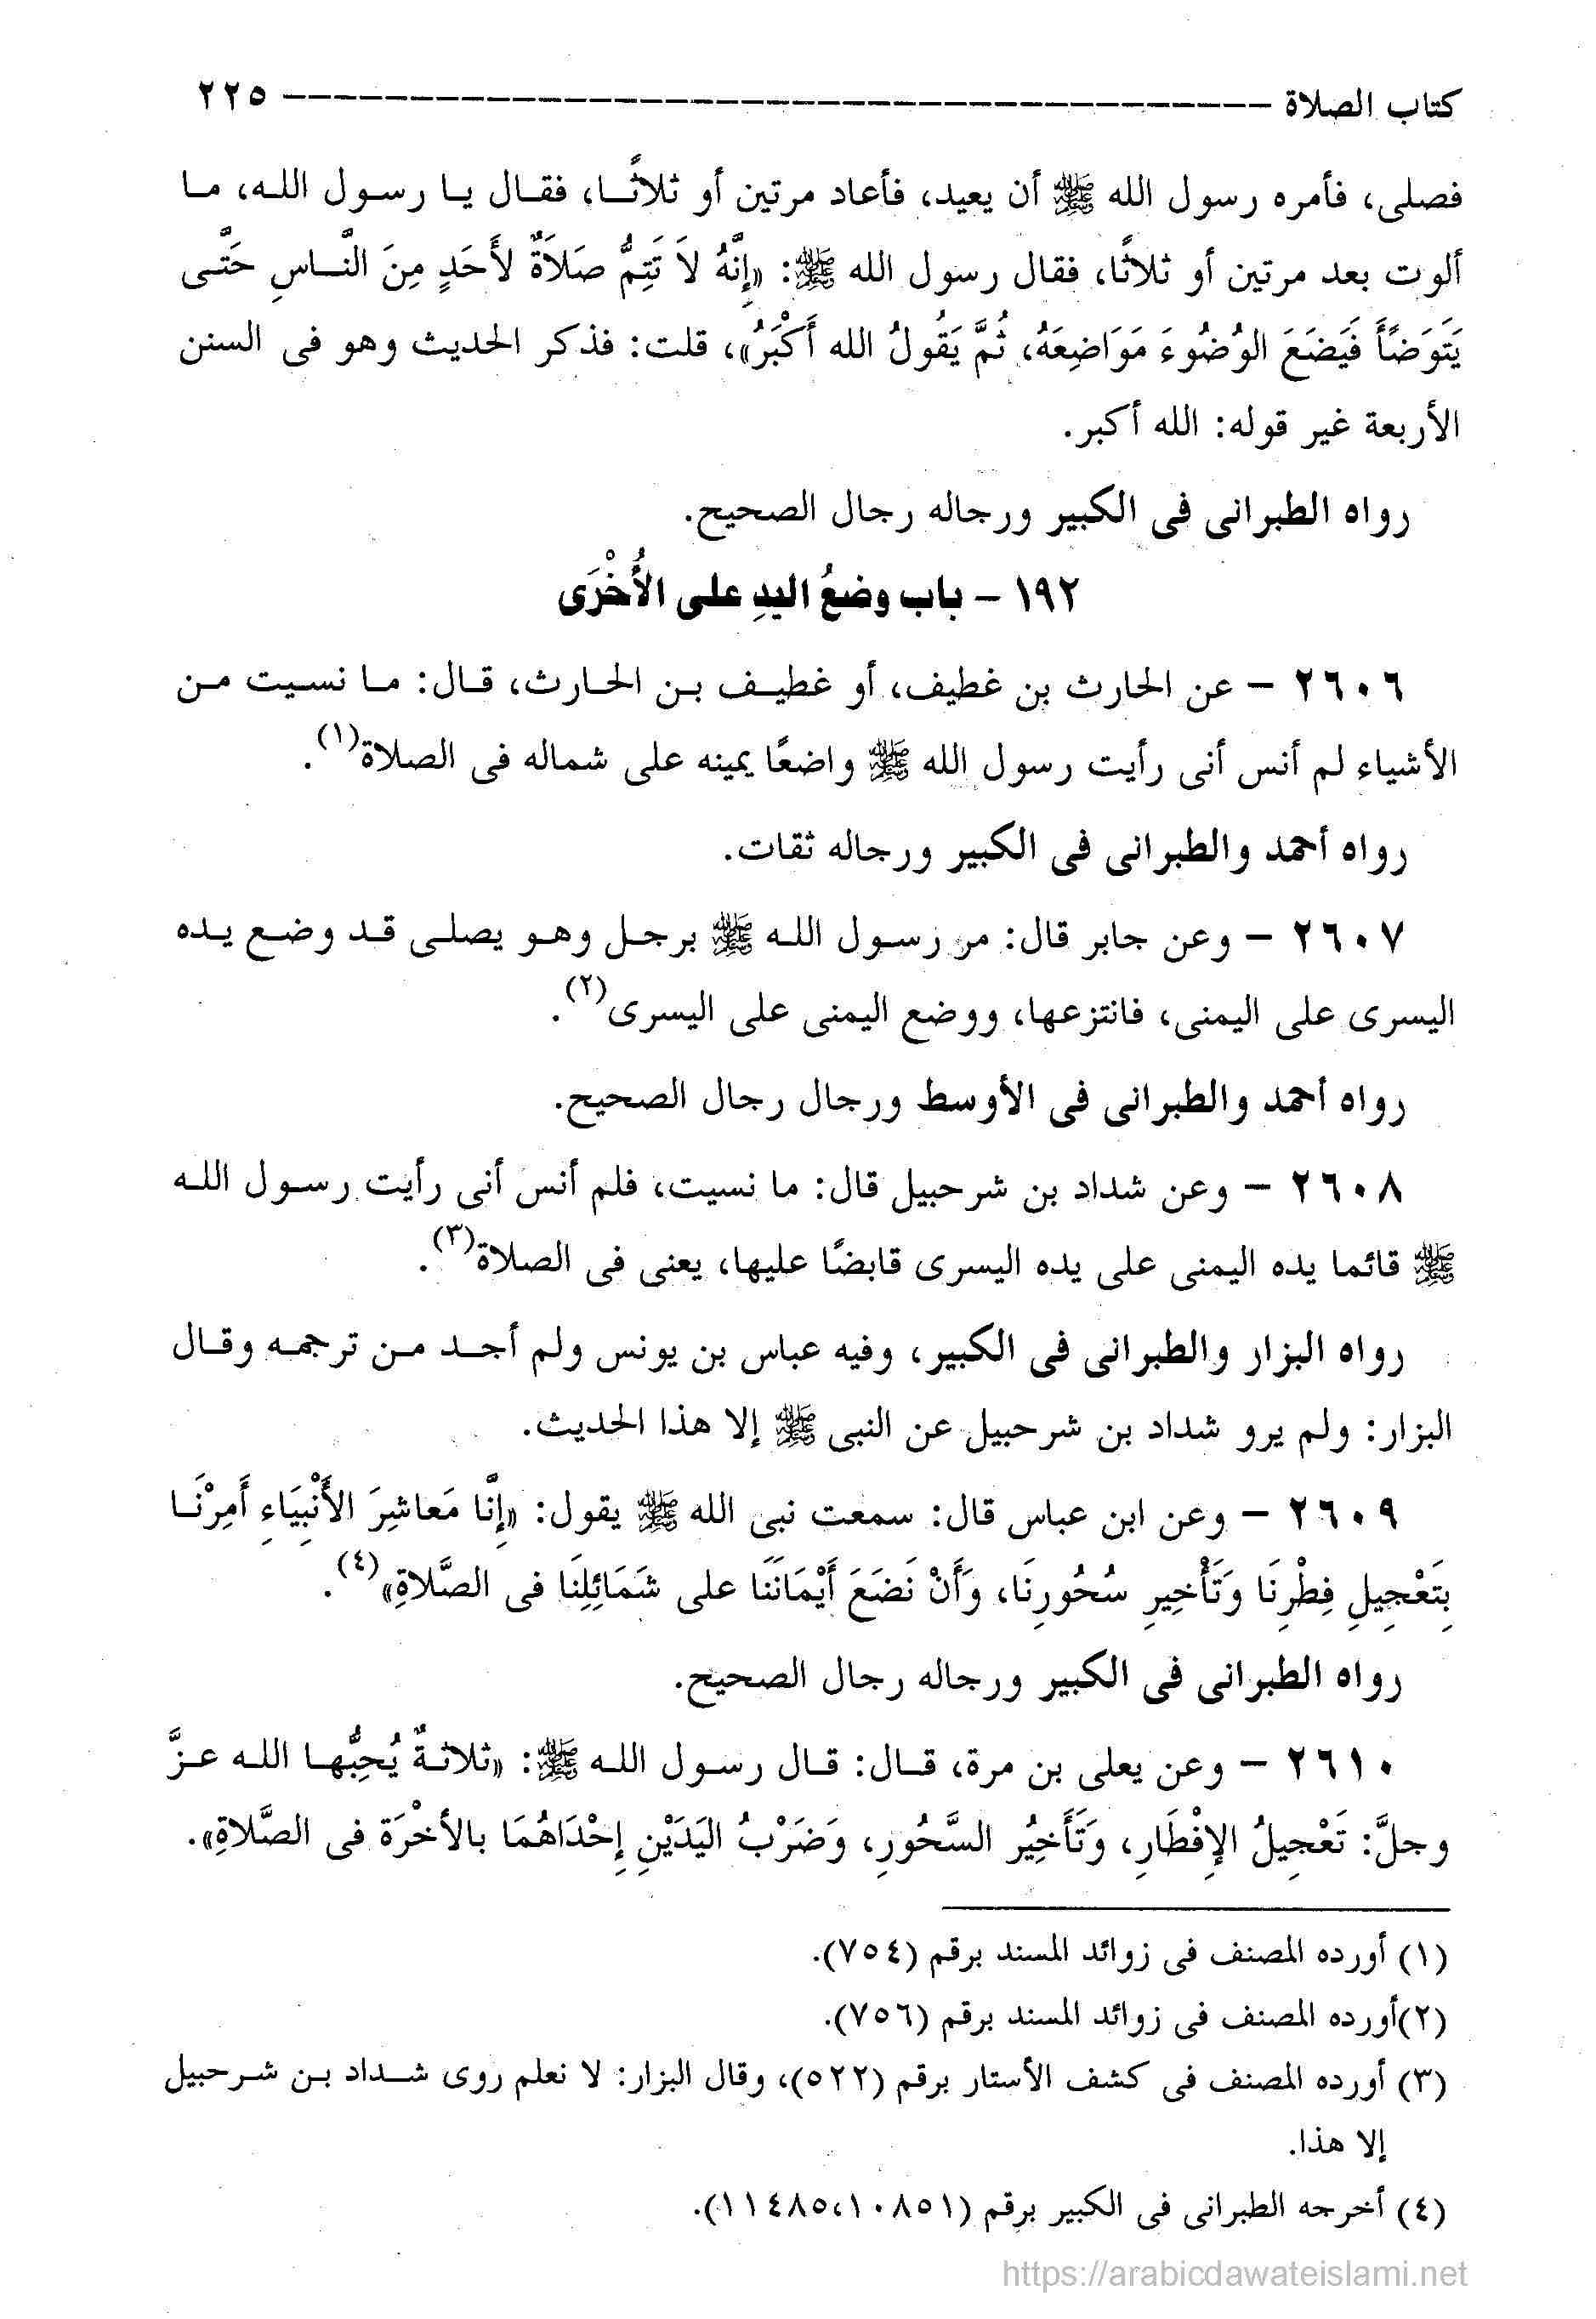 كتاب الصلاة ـــــــــــــــــــــــــــــــــــــــــــــــ ٢٢٥
فصلى، فأمره رسول الله ﷺ أن يعيد، فأعاد مرتين أو ثلاثًا، فقال يا رسول الله، ما
ألوت بعد مرتين أو ثلاثًا، فقال رسول الله ﷺ: «إِنَّهُ لاَ تَتِمُّ صَلاَةٌ لأَحَدٍ مِنَ النَّاسِ حَتَّى
يَتَوَضَّأَ فَيَضَعَ الوُضُوءَ مَوَاضِعَهُ، ثُمَّ يَقُولُ الله أَكْبَرُ»، قلت: فذكر الحديث وهو فى السنن
الأربعة غير قوله: الله أكبر.
رواه الطبرانى فى الكبير ورجاله رجال الصحيح.
١٩٢ - باب وضعُ اليدِ على الأُخْرَى
٢٦٠٦ - عن الحارث بن غطيف، أو غطيف بن الحارث، قال: ما نسيت من
الأشياء لم أنس أنى رأيت رسول الله ﷺ واضعًا يمينه على شماله فى الصلاة(١).
رواه أحمد والطبرانى فى الكبير ورجاله ثقات.
٢٦٠٧ - وعن جابر قال: مر رسول الله ﷺ برجل وهو يصلى قد وضع يده
اليسرى على اليمنى، فانتزعها، ووضع اليمنى على اليسرى(٢).
رواه أحمد والطبرانى فى الأوسط ورجال رجال الصحيح.
٢٦٠٨ - وعن شداد بن شرحبيل قال: ما نسيت، فلم أنس أنى رأيت رسول الله
ﷺ قائما يده اليمنى على يده اليسرى قابضًا عليها، يعنى فى الصلاة(٣).
رواه البزار والطبرانى فى الكبير، وفيه عباس بن يونس ولم أجد من ترجمه وقال
البزار: ولم يرو شداد بن شرحبيل عن النبى ﷺ إلا هذا الحديث.
٢٦٠٩ - وعن ابن عباس قال: سمعت نبى الله ﷺ يقول: «إِنَّا مَعاشِرَ الأَنْبِيَاءِ أَمِرْنَا
بِتَعْجِيلِ فِطْرِنَا وَتَأْخِيرِ سُحُورِنَا، وَأَنْ نَضَعَ أَيْمَانَنَا على شَمَائِلِنَا فى الصَّلاةِ»(٤).
رواه الطبرانى فى الكبير ورجاله رجال الصحيح.
٢٦١٠ - وعن يعلى بن مرة، قال: قال رسول الله ﷺ: «ثلاثةٌ يُحِبُّها الله عزَّ
وجلَّ: تَعْجِيلُ الإِفْطَارِ، وَتَأَخِيُر السَّحُورِ، وَضَرْبُ اليَدَيْنِ إِحْدَاهُمَا بالأخْرَة فى الصَّلاةِ».
(١) أورده المصنف فى زوائد المسند برقم (٧٥٤).
(٢)أورده المصنف فى زوائد المسند برقم (٧٥٦).
(٣) أورده المصنف فى كشف الأستار برقم (٥٢٢)، وقال البزار: لا نعلم روى شداد بن شرحبيل
إلا هذا.
(٤) أخرجه الطبرانى فى الكبير برقم (١١٤٨٥،١٠٨٥١).
https://arabicdawateislami.net